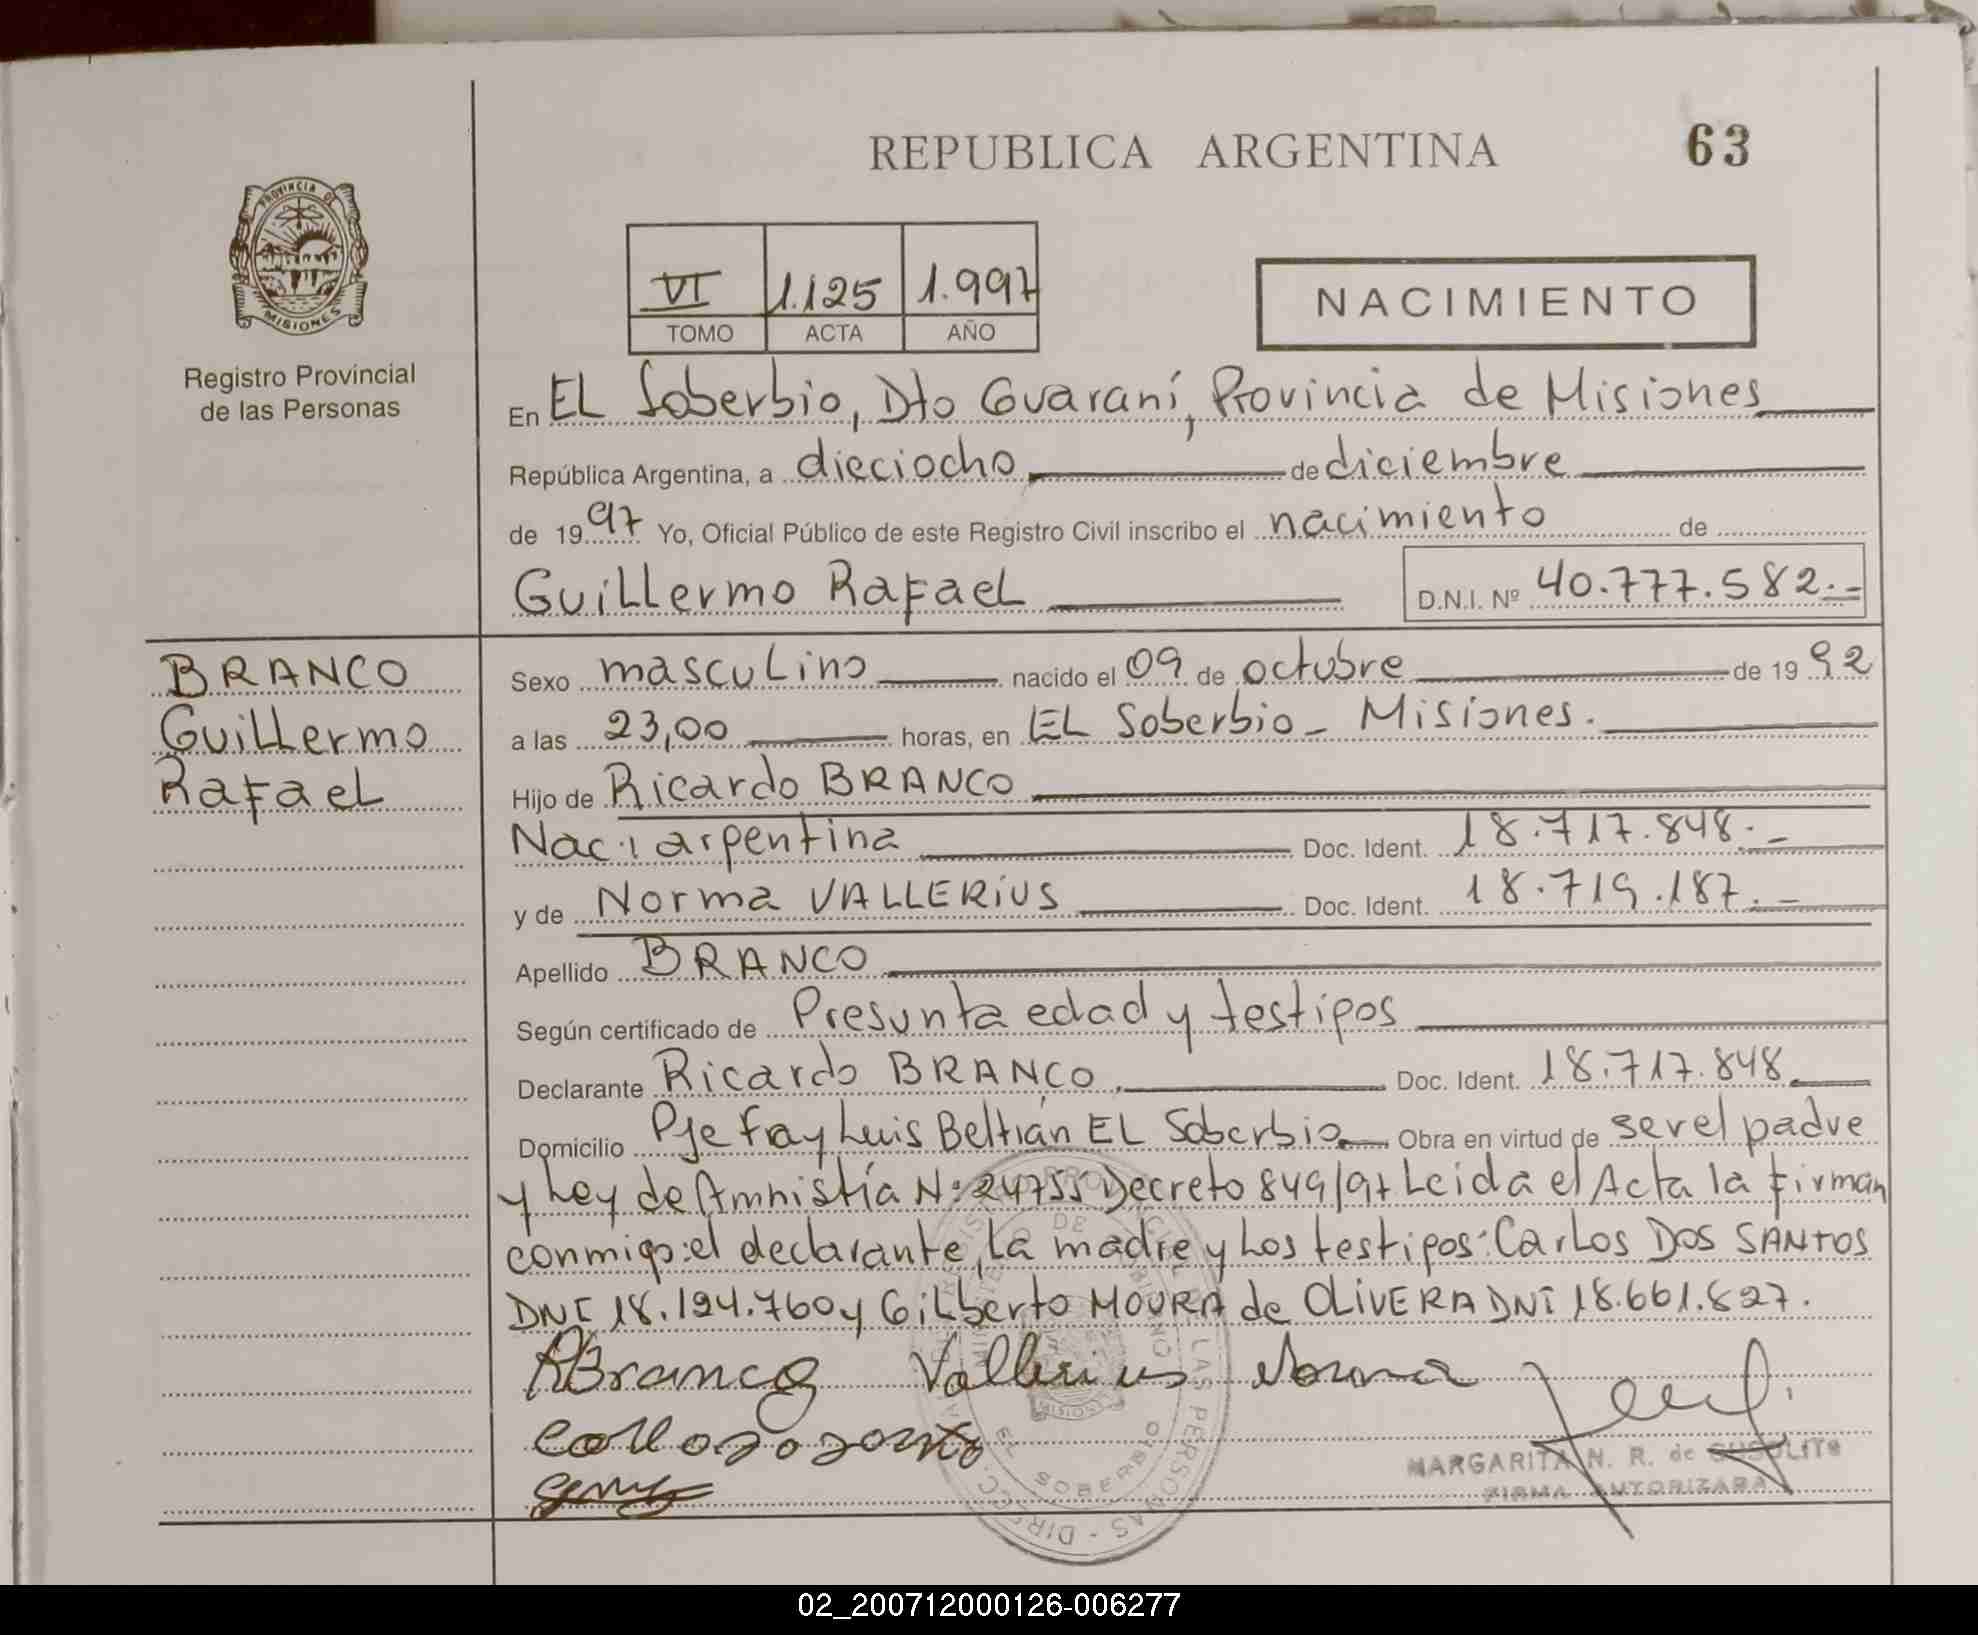 REPUBLICA ARGENTINA 63
PROVINCIA DE
MISIONES
Registro Provincial
de las Personas
VI 1.125 1.997
TOMO ACTA AÑO
NACIMIENTO
En EL Soberbio, Dto Guaraní, Provincia de Misiones
República Argentina, a dieciocho de diciembre
de 1997 Yo, Oficial Público de este Registro Civil inscribo el nacimiento de
Guillermo Rafael D.N.I. Nº 40.777.582.-
BRANCO
Guillermo
Rafael
Sexo masculino nacido el 09 de octubre de 1992
a las 23,00 horas, en EL Soberbio - Misiones.
Hijo de Ricardo BRANCO
Nac: argentina Doc. Ident. 18.717.848.-
y de Norma VALLERIUS Doc. Ident. 18.719.187.-
Apellido BRANCO
Según certificado de Presunta edad y testigos
Declarante Ricardo BRANCO. Doc. Ident. 18.717.848
Domicilio Pje Fray Luis Beltrán EL Soberbio Obra en virtud de ser el padre
y Ley de Amnistía Nº 24755 Decreto 849/97 Leida el Acta la firman
conmigo: el declarante, la madre y los testigos: Carlos DOS SANTOS
DNI 18.194.760 y Gilberto MOURA de OLIVERA DNI 18.661.827.
RBranco Vallerius Norma
MARGARITA N. R. de
FIRMA AUTORIZADA
EL SOBERBIO
02_200712000126-006277